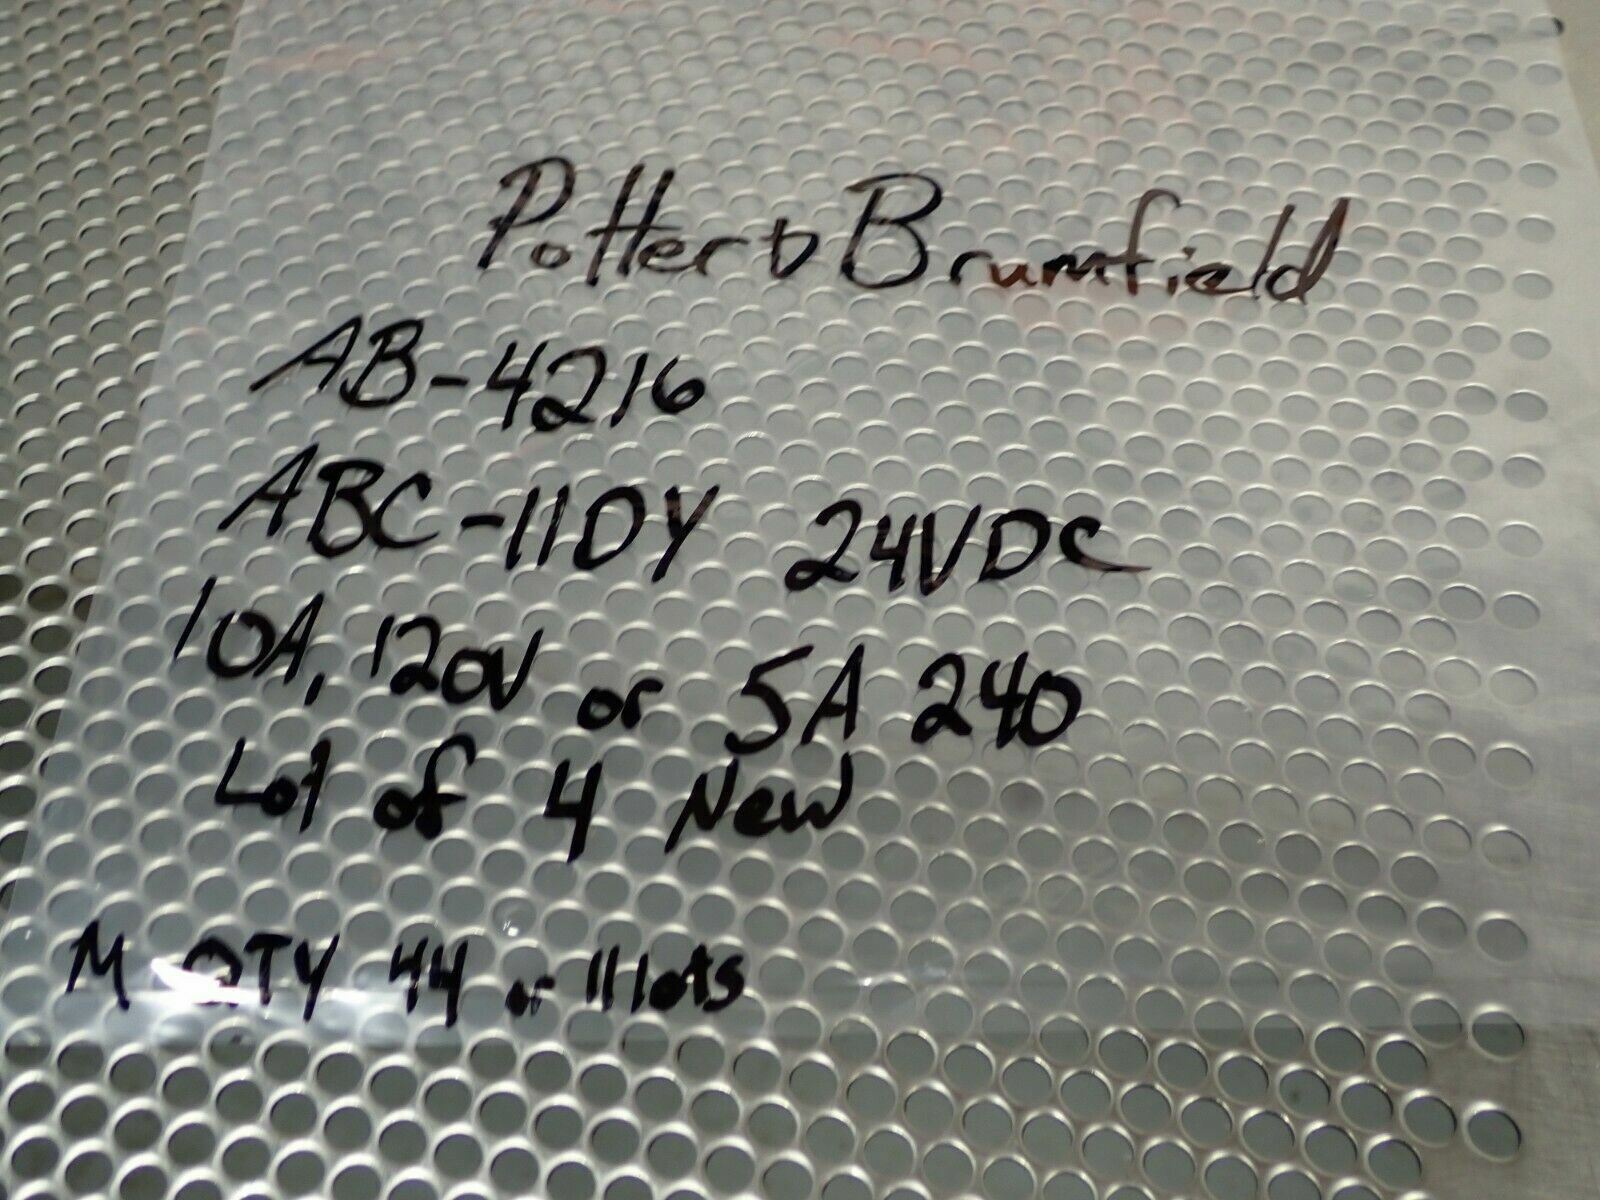 Potter & Brumfield
AB-4216
ABC-11DY 24VDC
10A, 120V or 5A 240
Lot of 4 New
M QTY 44 or 11 lots